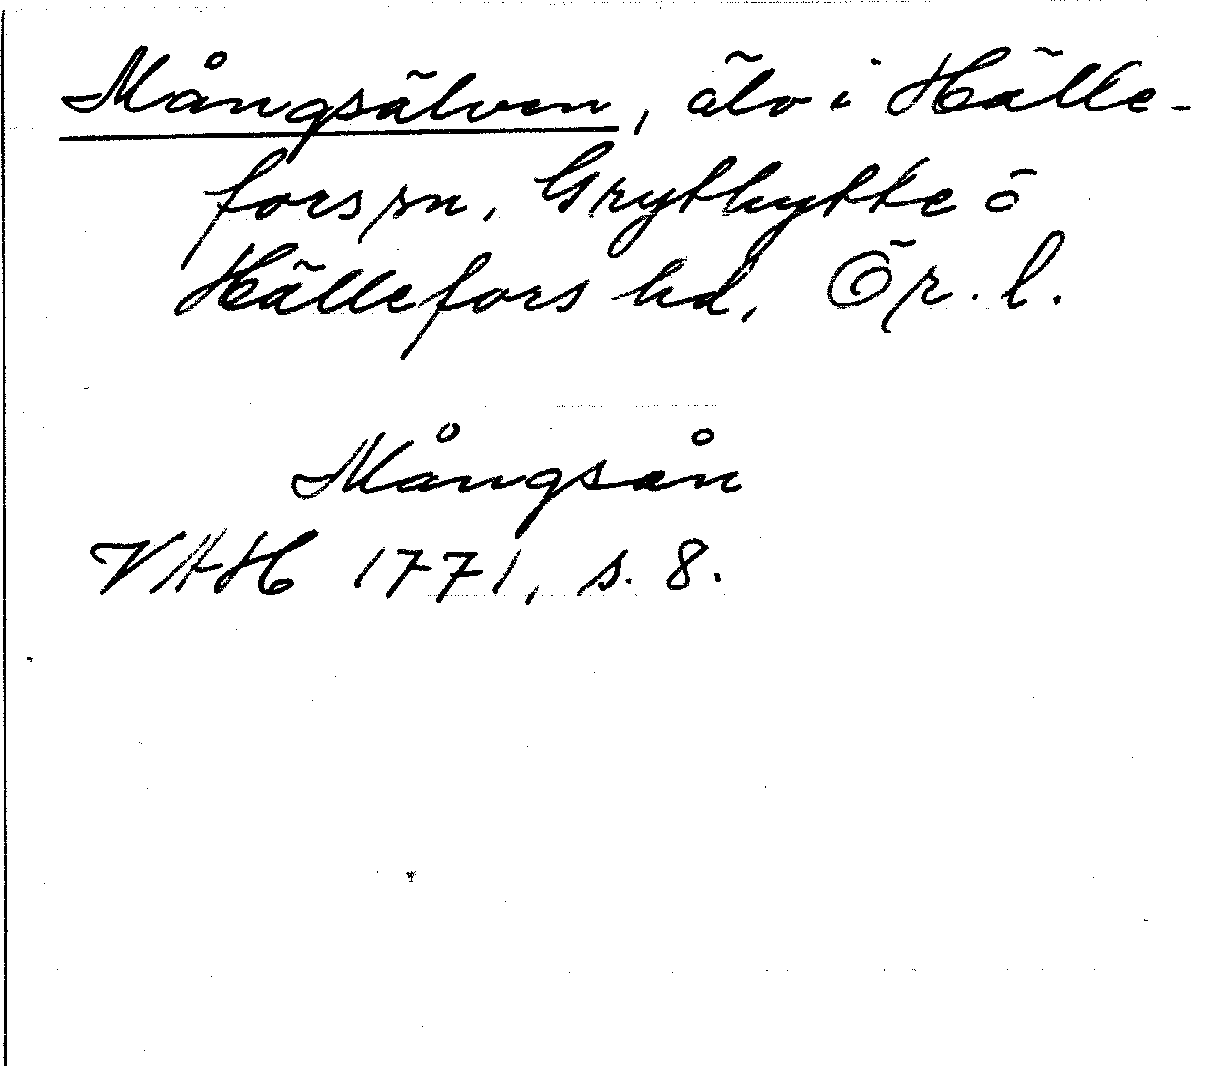 Mångsälven, älv i Hälle-
fors sn, Grythytte o
Hällefors hd, Ör. l.
Mångsån
VAH 1771, s. 8.